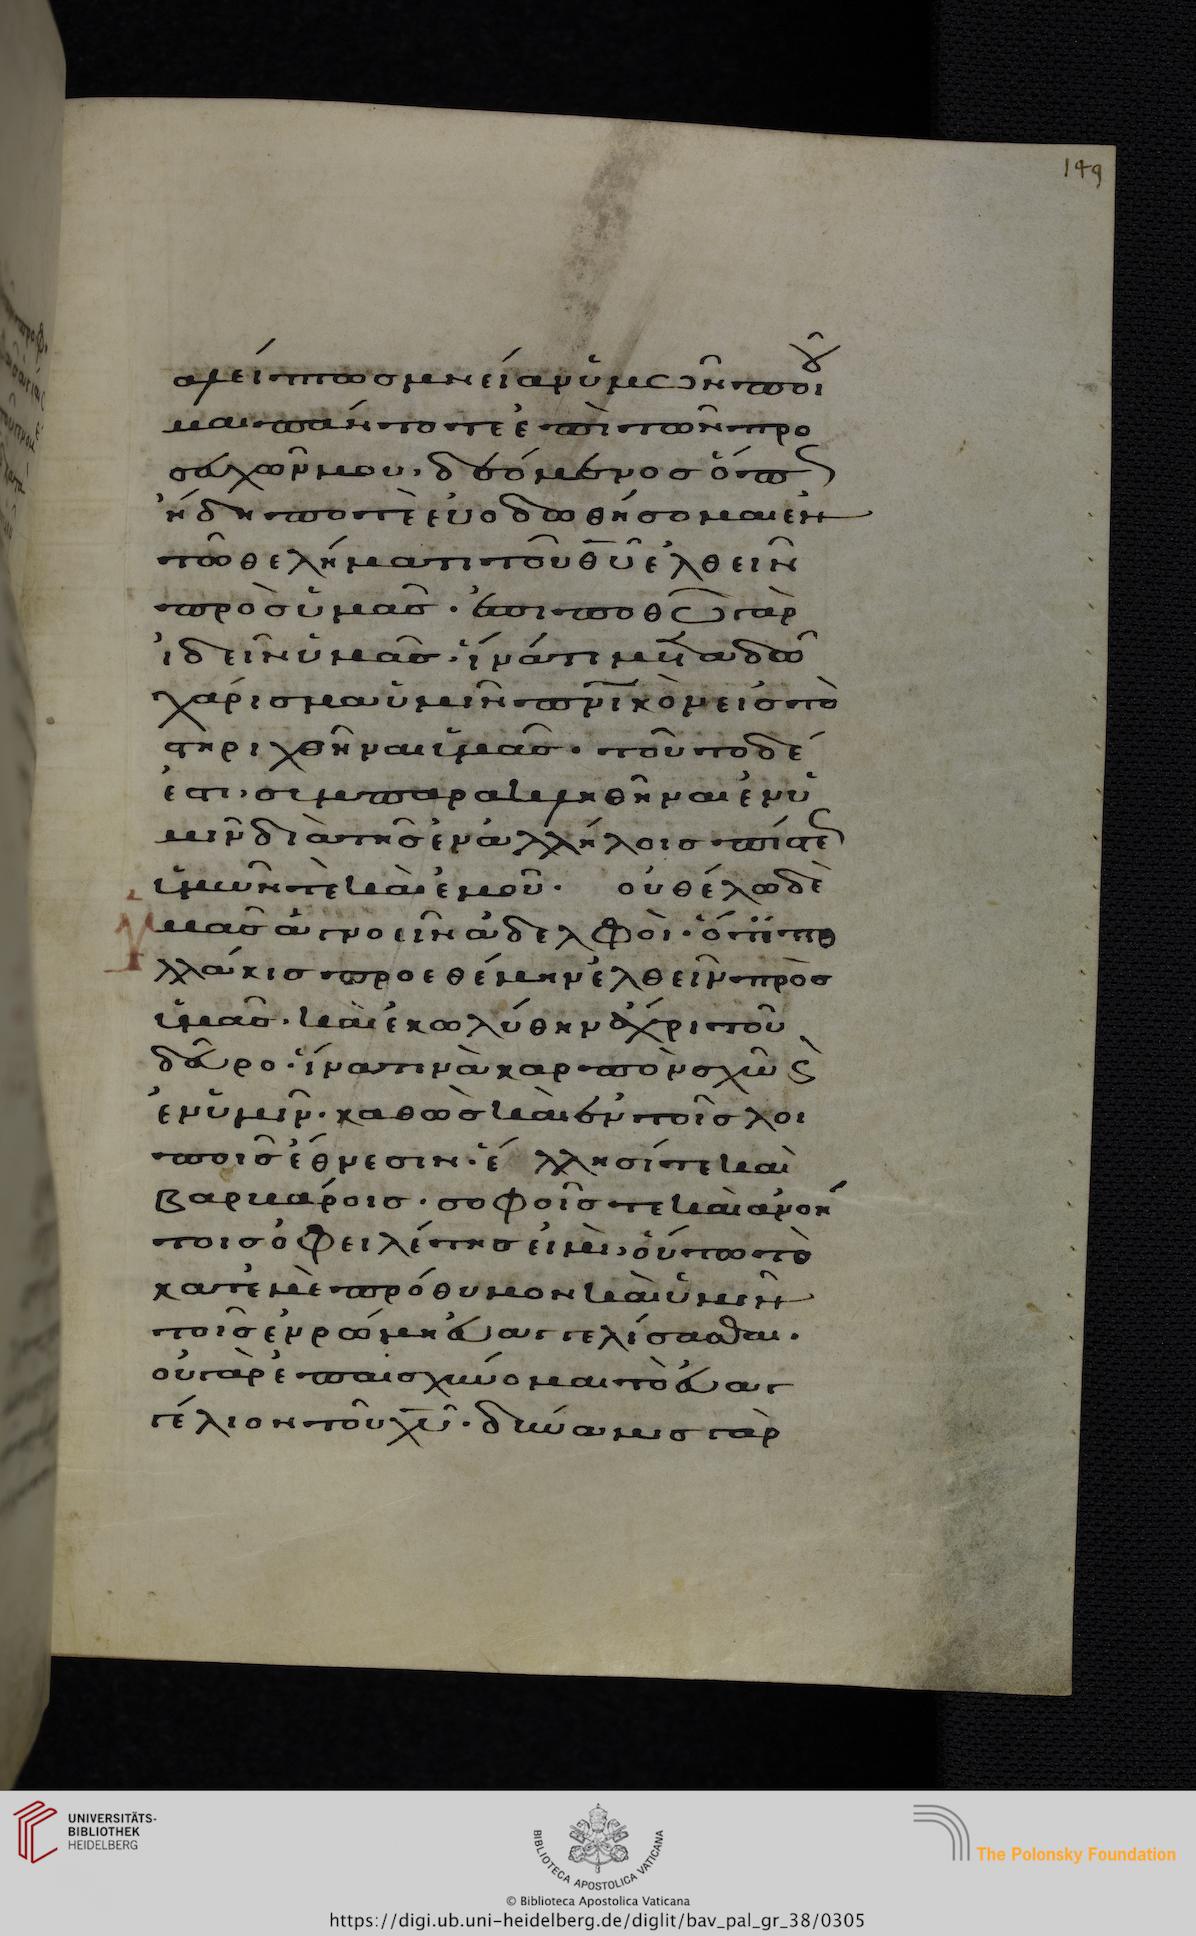 149
αλείπτως μνείαν ὑμῶν ποιοῦ
μαι πάντοτε ἐπὶ τῶν προ
σευχῶν μου, δεόμενος ὅπως
ἤδη ποτὲ εὐοδωθήσομαι ἐν
τῶ θελήματι τοῦ θ̅υ̅ ἐλθεῖν
πρὸς ὑμᾶς· ἐπιποθῶ γὰρ
ἰδεῖν ὑμᾶς· ἵνά τι μεταδῶ
χάρισμα ὑμῖν πνικὸν εἰς τὸ
στηριχθῆναι ὑμᾶς· τοῦτο δέ
ἐστι, συμπαρακληθῆναι ἐν ὑ
μῖν διὰ τῆς ἐν ἀλλήλοις πίστεως
ὑμῶν τὲ καὶ ἐμοῦ· οὐ θέλω δὲ
ὑμᾶς ἀγνοεῖν ἀδελφοὶ· ὅτι πο
λλάκις προεθέμην ἐλθεῖν πρὸς
ὑμᾶς· καὶ ἐκωλύθην ἄχρι τοῦ
δεῦρο· ἵνα τινὰ καρπὸν σχῶ καὶ
ἐν ὑμῖν· καθὼς καὶ ἐν τοῖς λοι
ποῖς ἔθνεσιν· ἕλλησί τε καὶ
βαρβάροις· σοφοῖς τε καὶ ἀνοή
τοις ὀφειλέτης εἰμὶ, οὕτω τὸ
κατ' ἐμὲ πρόθυμον καὶ ὑμῖν
τοῖς ἐν ρώμη εὐαγγελίσασθαι·
οὐ γὰρ ἐπαισχύνομαι τὸ εὐαγ
γέλιον τοῦ χ̅υ̅· δύναμις γὰρ
UNIVERSITÄTS-
BIBLIOTHEK
HEIDELBERG
BIBLIOTECA APOSTOLICA VATICANA
The Polonsky Foundation
© Biblioteca Apostolica Vaticana
https://digi.ub.uni-heidelberg.de/diglit/bav_pal_gr_38/0305